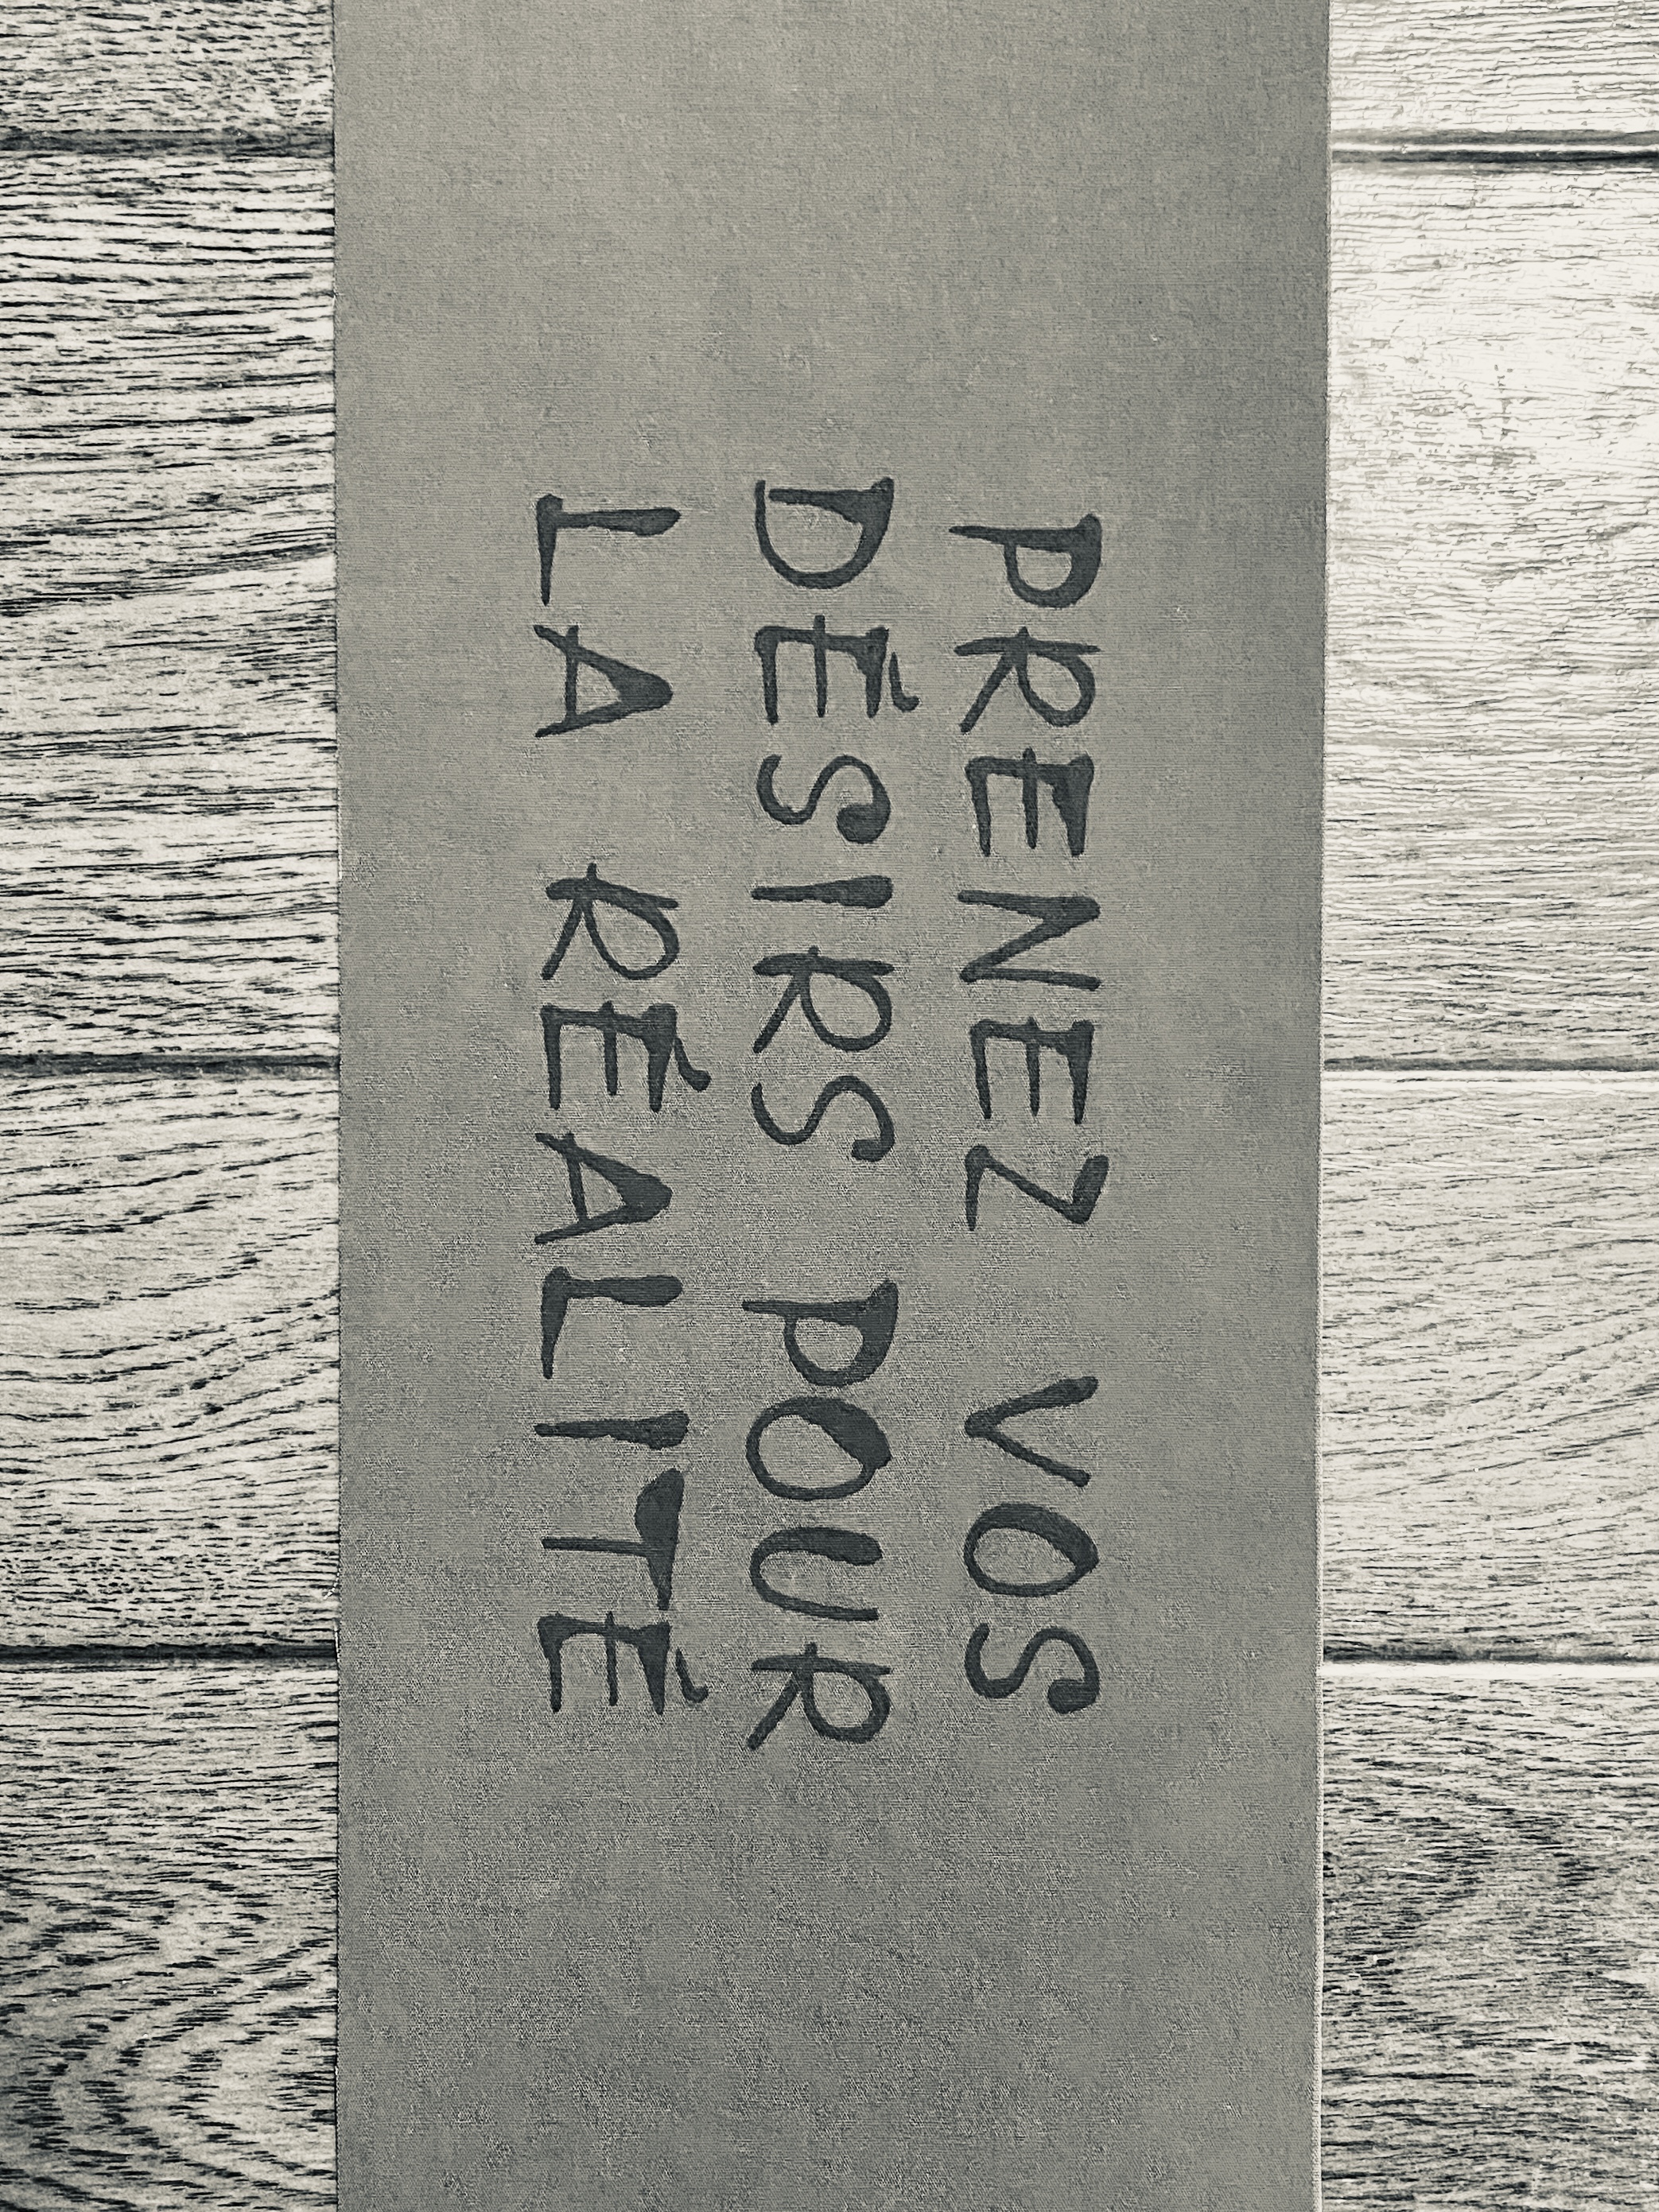 PRENEZ VOS
DÉSIRS POUR
LA RÉALITÉ